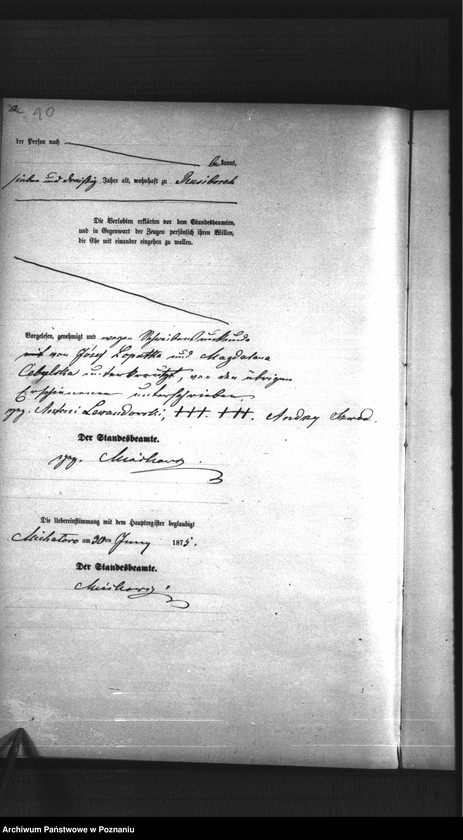 10
der Person nach
bekannt,
sieben und dreißig Jahre alt, wohnhaft zu Rusiborek
Die Verlobten erklärten vor dem Standesbeamten,
und in Gegenwart der Zeugen persönlich ihren Willen,
die Ehe mit einander eingehen zu wollen.
Vorgelesen, genehmigt und wegen Schreibensunkunde
von Józef Lopatka und Magdalena
unterkreuzt, von den übrigen
Erschienenen unterschrieben.
gez. Antoni Lewandowski, +++. +++. Andrzy
Der Standesbeamte.
gez.
Die Uebereinstimmung mit dem Hauptregister beglaubigt
am 30ten Juny 1875.
Der Standesbeamte.
Archiwum Państwowe w Poznaniu